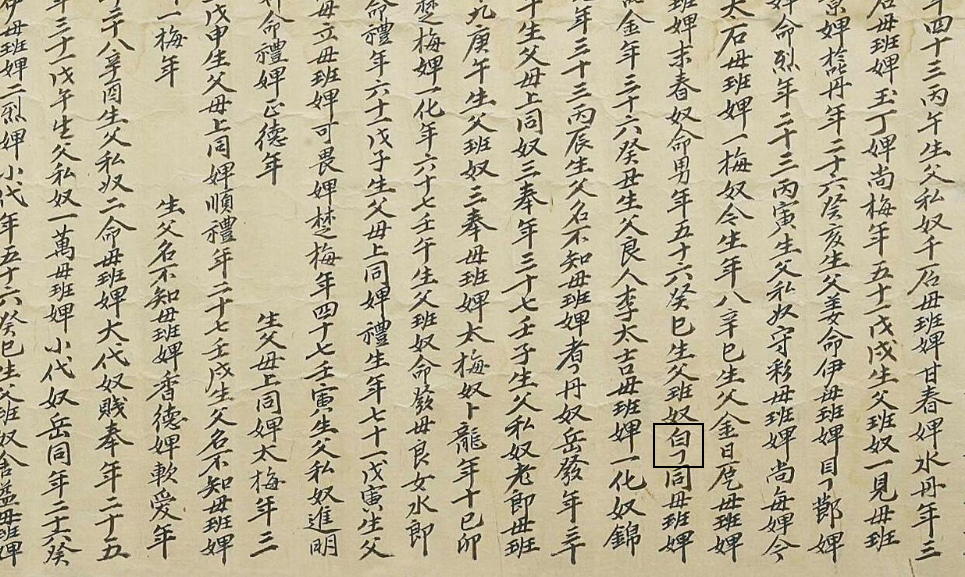 年四十三丙午生父私奴千石母班婢甘春婢水丹年三
石母班婢玉丁婢尚梅年五十一戊戌生父班奴一見母班
婢丹年二十六癸亥生父姜命伊母班婢目丁鄭婢
婢命烈年二十三丙寅生父私奴守彩母班婢尚每婢今
太石母班婢一梅奴令生年八辛巳生父金日尼母班婢
班婢末春奴命男年五十六癸巳生父班奴白丁同母班婢
金年三十六癸丑生父良人李太吉母班婢一化奴錦
年三十三丙辰生父名不知母班婢者丹奴岳發年三十
生父母上同奴三奉年三十七壬子生父私奴老郎母班
九庚午生父班奴三奉母班婢太梅奴卜龍年十己卯
楚梅婢一化年六十七壬午生父班奴命發母良女水郎
命禮年六十一戊子生父母上同婢禮生年七十一戊寅生父
立母班婢可畏婢楚梅年四十七壬寅生父私奴進明
命禮婢正德年 生父母上同婢太梅年三
戊申生父母上同婢順禮年二十七壬戌生父名不知母班婢
一梅年 生父名不知母班婢香德婢軟愛年
二十八辛酉生父私奴二命母班婢大代奴賤奉年二十五
年三十一戊午生父私奴一萬母班婢小代奴岳同年二十六癸
母班婢二烈婢小代年五十六癸巳生父班奴金益母班婢